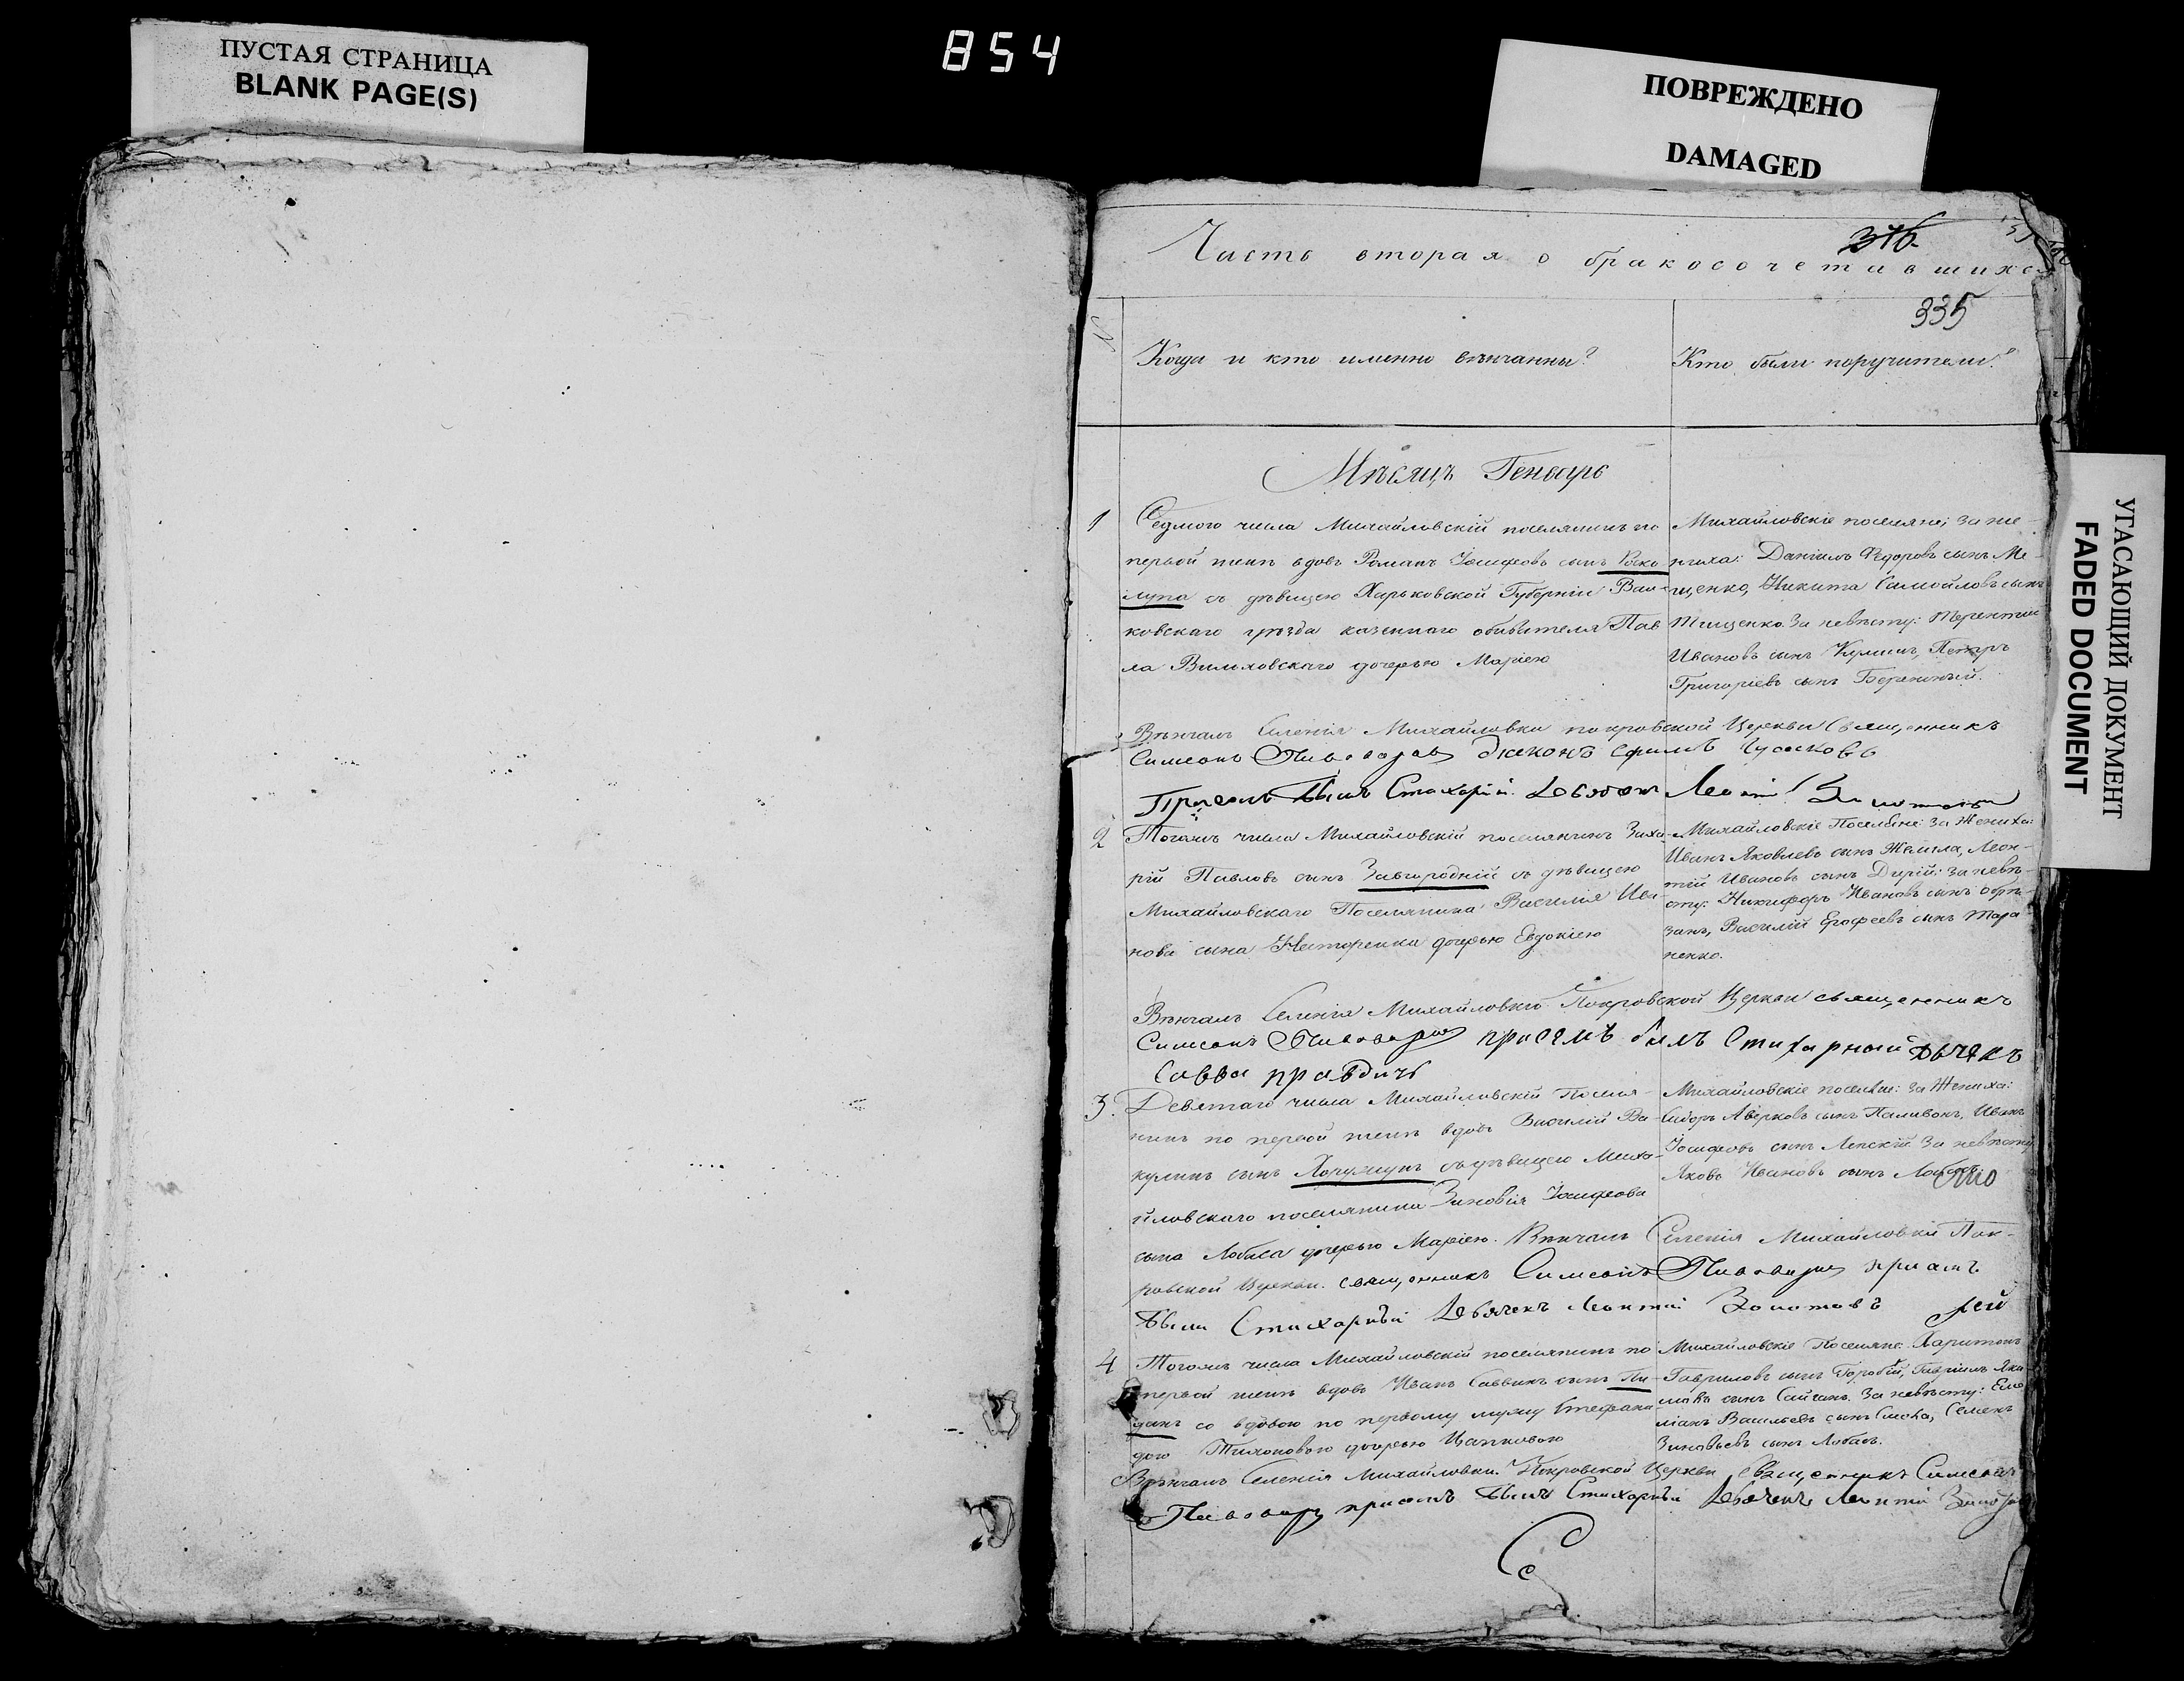 ПУСТАЯ СТРАНИЦА
BLANK PAGE(S)
854
ПОВРЕЖДЕНО
DAMAGED
УГАСАЮЩИЙ ДОКУМЕНТ
FADED DOCUMENT
376.
Часть вторая о бракосочетавшихся
335
Когда и кто именно вѣнчанны?
Кто были поручители?
Мѣсяцъ Генварь
1
Седмого числа Михайловскій поселянинъ по
первой женѣ вдовъ Романъ Іосифовъ сынъ
съ дѣвицею Харьковской Губерніи Вал-
ковскаго уѣзда казеннаго обывателя Пав
ла Вилховскаго дочерью Маріею
Михайловскіе поселяне; за же-
ниха: Даніилъ Федоровъ сынъ Ме-
щенко, Никита Самойловъ сынъ
Тищенко. За невѣсту: Терентій
Ивановъ сынъ Петръ
Григоріевъ сынъ Бережный.
Вѣнчалъ Селенія Михайловки покровской Церкви Священникъ
Симеонъ Пивоваров диаконъ Ефимъ
Притомъ былъ Стихарній Леонтій
2
Тогожъ числа Михайловскій поселянинъ Заха-
рій Павловъ сынъ Завгородній съ дѣвицею
Михайловскаго Поселянина Василія Ива-
нова сына Нестеренка дочерью Евдокіею
Михайловскіе Поселяне: За Жениха:
Иванъ Яковлевъ сынъ Жемела, Леон-
тій Ивановъ сынъ за невѣ-
сту: Никифоръ Ивановъ сынъ
Василій Ерофеевъ сынъ Тара
ненко.
Вѣнчалъ Селенія Михайловки Покровской Церкви священникъ
Симеонъ Пивоваров присемъ былъ Стихарный дьячекъ
Савва правдичъ
3.
Девятаго числа Михайловскій Поселя-
нинъ по первой женѣ вдовъ Василій Ва-
кулинъ сынъ съ дѣвицею Миха-
йловскаго поселянина Зиновія Іосифова
сына Лобаса дочерью Маріею. Вѣнчалъ Селенія Михайловки Пок-
ровской Церкви священникъ Симеонъ Пивоваров при семъ
былъ Стихарный Дьячекъ Леонтій Золотовъ
Михайловскіе поселяне: за Жениха:
Сидоръ Аверковъ сынъ Паливода, Иванъ
Іосифовъ сынъ Ленскій За невѣсту
Яковъ Ивановъ сынъ
4
Тогожъ числа Михайловскій поселянинъ по
первой женѣ вдовъ Иванъ Саввинъ сынъ
со вдовою по первому мужу Стефани-
дою Тихоновою дочерью Цапковою
Михайловскіе Поселяне. Харитонъ
Гавриловъ сынъ Горобій, Гавріилъ Яки-
мовъ сынъ За невѣсту: Еме
ліанъ Васильевъ сынъ Семенъ
Зиновьевъ сынъ Лобасъ.
Вѣнчалъ Селенія Михайловки Покровской Церкви священникъ Симеонъ
Пивоваров присемъ былъ Стихарный Дьячекъ Леонтій